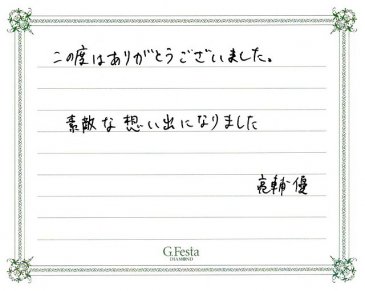 この度はありがとうございました。
素敵な想い出になりました
亮輔 優
G.Festa
DIAMOND